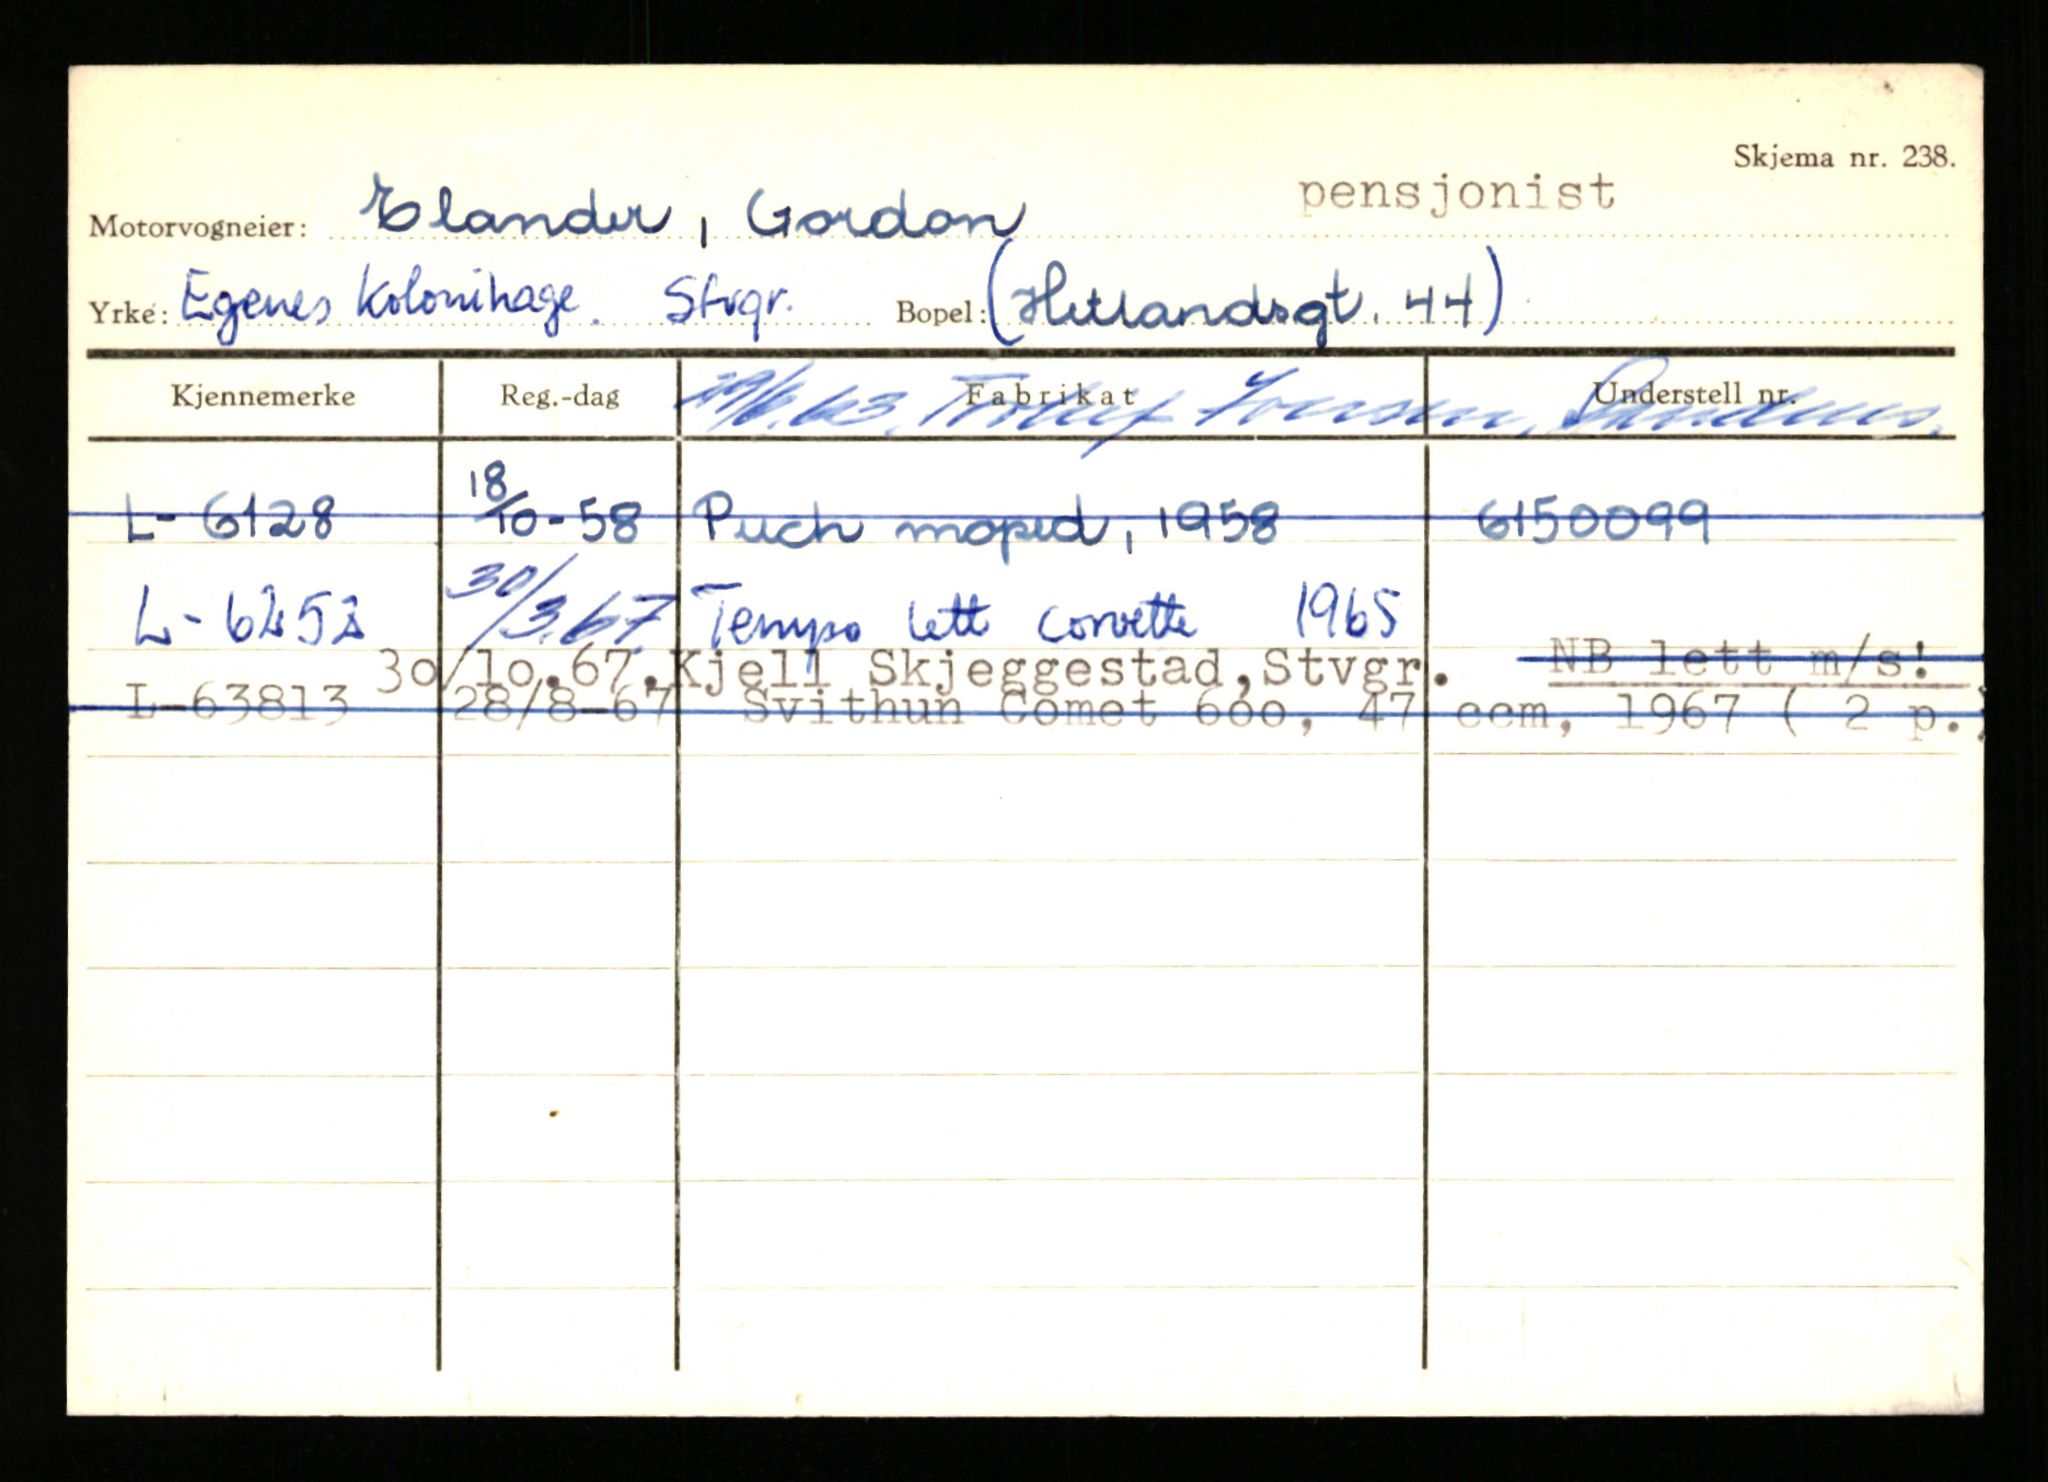 Skjema nr. 238.
pensjonist
Motorvogneier: Elander, Gordon
Yrke: Egenes Kolonihage. Stvgr. Bopel: (Hetlandsgt. 44)
Kjennemerke Reg.-dag Fabrikat Understell nr.
Iversen, Sandnes.
L- 6128 18/10-58 Puch moped, 1958 6150099
L- 30/3.67. Tempo lett corvette 1965
30/10.67. Kjell Skjeggestad, Stvgr. NB lett m/s!
L-63813 28/8-67 Svithun Comet 600, 47 ccm, 1967 ( 2 p.)